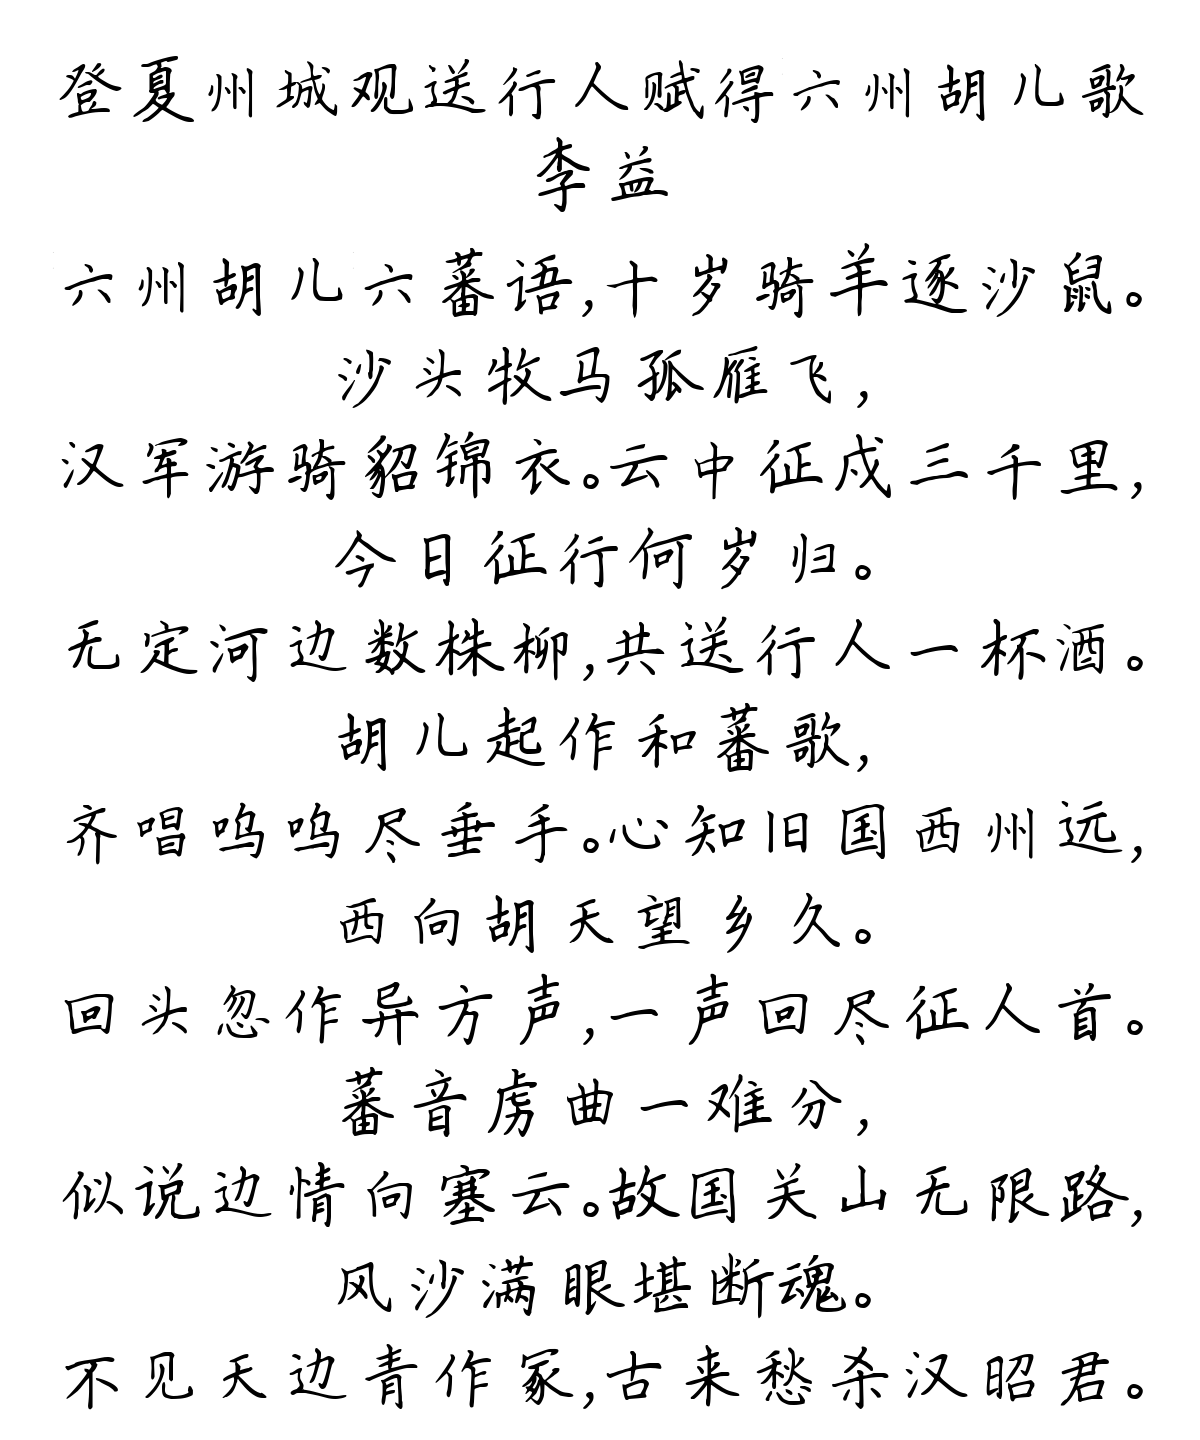 登夏州城观送行人赋得六州胡儿歌
李益
六州胡儿六蕃语,十岁骑羊逐沙鼠。
沙头牧马孤雁飞,
汉军游骑貂锦衣。云中征戍三千里,
今日征行何岁归。
无定河边数株柳,共送行人一杯酒。
胡儿起作和蕃歌,
齐唱呜呜尽垂手。心知旧国西州远,
西向胡天望乡久。
回头忽作异方声,一声回尽征人首。
蕃音虏曲一难分,
似说边情向塞云。故国关山无限路,
风沙满眼堪断魂。
不见天边青作冢,古来愁杀汉昭君。